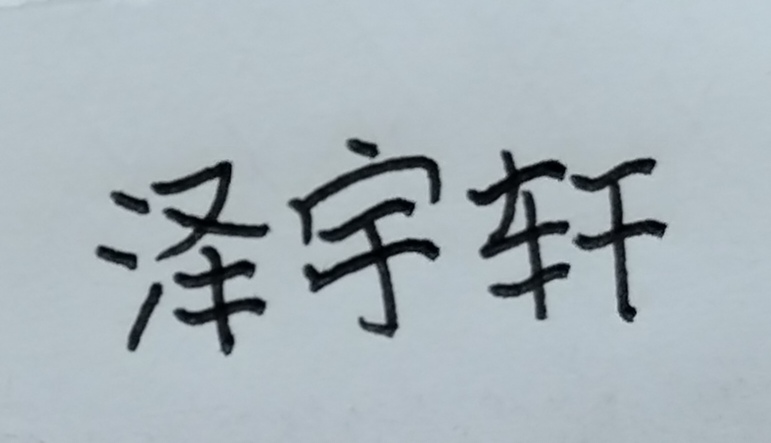 泽宇轩